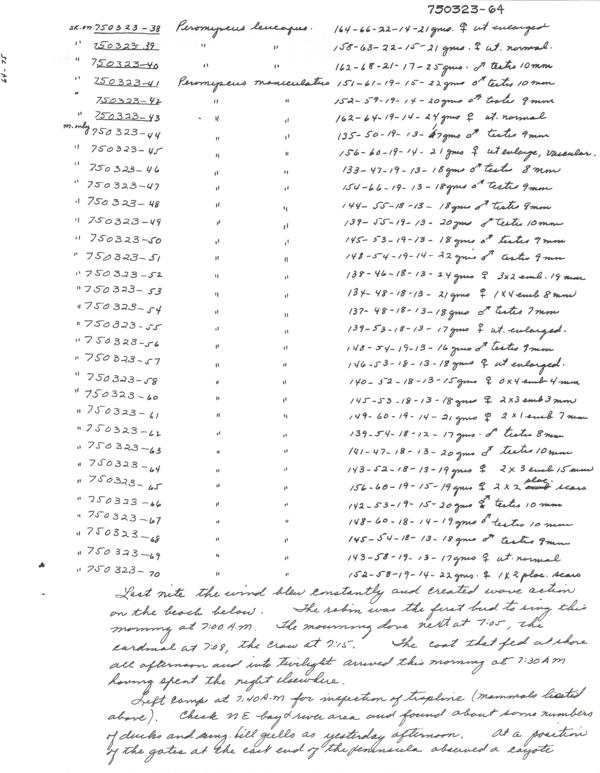 750323-64
64-75
SK.on 750323-38 Peromyscus leucopus. 164-66-22-14-21gms. ♀ ut enlarged
" 750323-39 " " 158-63-22-15-21 gms. ♀ ut. normal.
" 750323-40 " " 162-68-21-17-25gms. ♂ testis 10mm
" 750323-41 Peromyscus maniculatus 151-61-19-15-22gms ♂ testis 10mm
" 750323-42 " " 152-59-19-14-20gms ♂ testis 9mm
" 750323-43 " " 162-64-19-14-24gms ♀ ut. normal
m.mty 750323-44 " " 135-50-19-13-17gms ♂ testes 9mm
" 750323-45 " " 156-60-19-14-21gms ♀ ut enlarge, vascular.
" 750323-46 " " 133-47-19-13-18gms ♂ testis 8mm
" 750323-47 " " 154-66-19-13-18gms ♂ testis 9mm
" 750323-48 " " 144-55-18-13-18gms ♂ testes 9mm
" 750323-49 " " 139-55-19-13-20gms ♂ testis 10mm
" 750323-50 " " 145-53-19-13-18gms ♂ testes 9mm
" 750323-51 " " 148-54-19-14-22gms ♂ testis 9mm
" 750323-52 " " 138-46-18-13-24gms ♀ 3x2 emb. 19mm
" 750323-53 " " 134-48-18-13-21gms ♀ 1x4 emb 8mm
" 750323-54 " " 137-48-18-13-18gms ♂ testes 7mm
" 750323-55 " " 139-53-18-13-17gms ♀ ut. enlarged.
" 750323-56 " " 148-54-19-13-16gms ♂ testis 9mm
" 750323-57 " " 146-53-18-13-18gms ♀ ut enlarged.
" 750323-58 " " 140-52-18-13-15gms ♀ 0x4 emb 4mm
" 750323-60 " " 145-53-18-13-18gms ♀ 2x3 emb 3mm
" 750323-61 " " 149-60-19-14-21gms ♀ 2x1 emb 7mm
" 750323-62 " " 139-54-18-12-17gms. ♂ testes 8mm
" 750323-63 " " 141-47-18-13-20gms ♂ testes 10mm
" 750323-64 " " 143-52-18-13-19gms ♀ 2x3 emb 15mm
" 750323-65 " " 156-60-19-15-19gms ♀ 2x2 plac. scars
" 750323-66 " " 142-53-19-15-20gms ♂ testes 10mm
" 750323-67 " " 148-60-18-14-19gms ♂ testes 10mm
" 750323-68 " " 145-54-18-13-18gms ♂ testes 9mm
" 750323-69 " " 143-58-19-13-17gms ♀ ut. normal
" 750323-70 " " 152-58-19-14-22gms. ♀ 1x2 plac. scars
Last nite the wind blew constantly and created wave action
on the beach below. The robin was the first bird to sing this
morning at 7:00 A.M. The mourning dove next at 7:05, the
cardinal at 7:08, the crow at 7:15. The coot that fed at shore
all afternoon and into twilight arrived this morning at 7:30 AM
having spent the night elsewhere.
Left camp at 7:40 A.M for inspection of trapline (mammals listed
above). Check NE bay & river area and found about same numbers
of ducks and ring-bill gulls as yesterday afternoon. At a position
of the gates at the east end of the peninsula observed a coyote